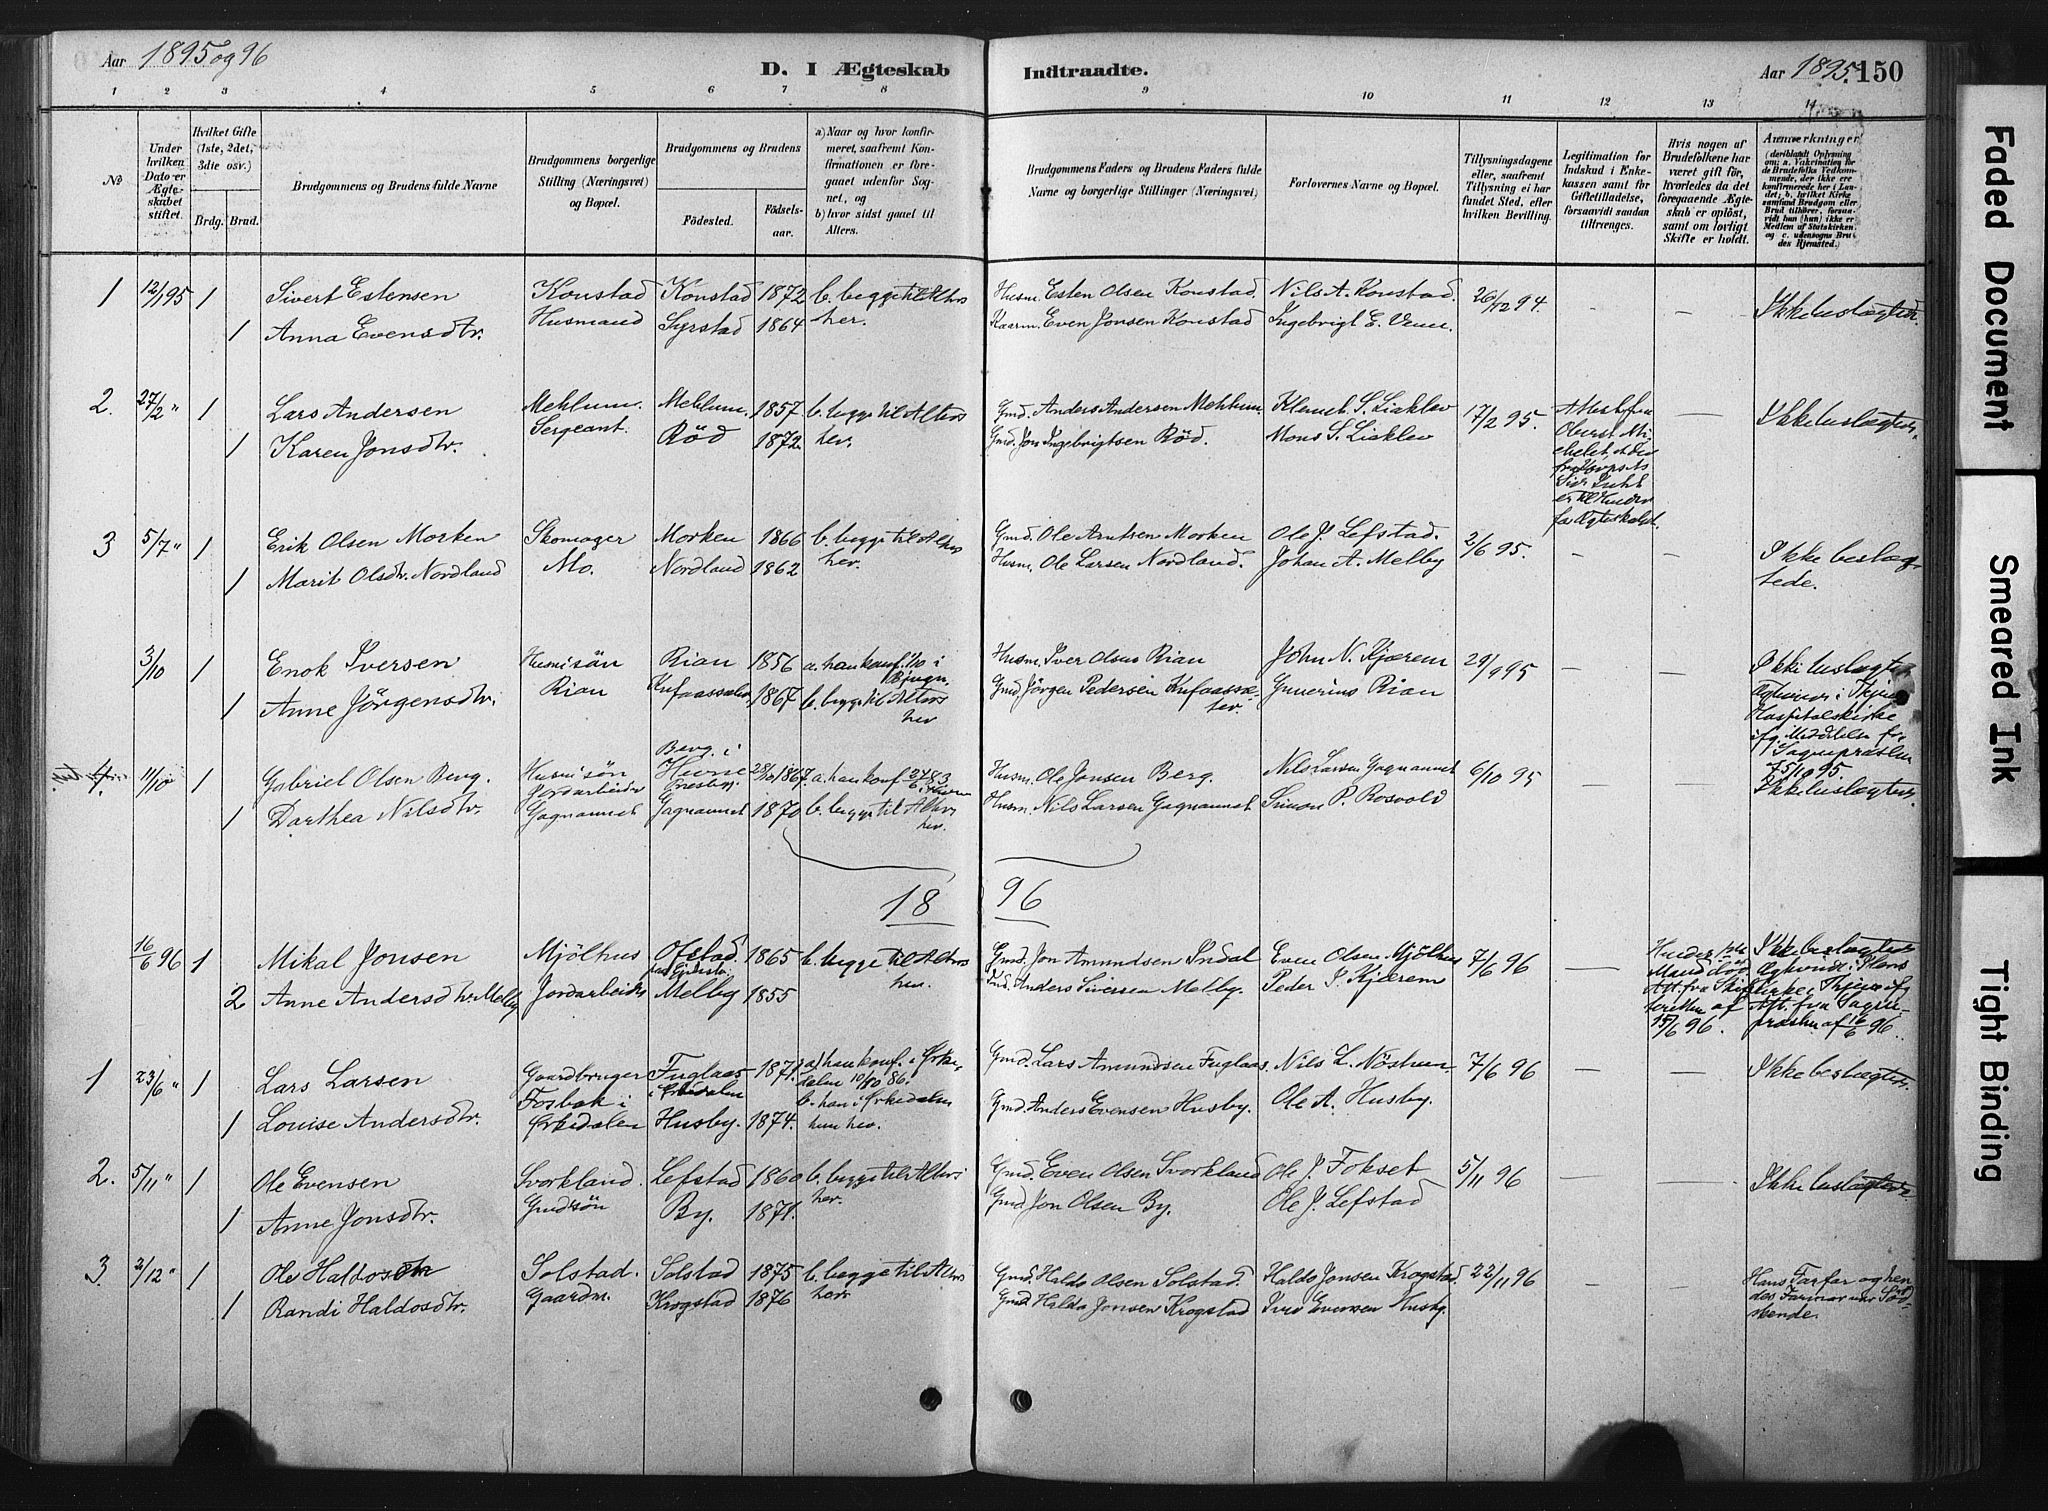 Aar 1895 og 96
D. I Ægteskab
Indtraadte.
Aar 1895. 150
1 2 3 4 5 6 7 8 9 10 11 12 13 14
No
Under hvilken Dato er Ægteskabet stiftet.
Hvilket Gifte (1ste, 2det, 3die osv.)
Brdg. Brud.
Brudgommens og Brudens fulde Navne
Brudgommens borgerlige Stilling (Næringsvei) og Bopæl.
Brudgommens og Brudens
Fødested.
Fødselsaar.
a) Naar og hvor konfirmeret, saafremt Konfirmationen er foregaaet udenfor Sognet, og
b) hvor sidst gaaet til Alters.
Brudgommens Faders og Brudens Faders fulde Navne og borgerlige Stillinger (Næringsvei).
Forlovernes Navne og Bopæl.
Tillysningsdagene eller, saafremt Tillysning ei har fundet Sted, efter hvilken Bevilling.
Legitimation for Indskud i Enkekassen samt for Giftetilladelse, forsaavidt saadan tiltrænges.
Hvis nogen af Brudefolkene har været gift før, hvorledes da det foregaaende Ægteskab er opløst, samt om lovligt Skifte er holdt.
Anmærkninger (deriblandt Oplysning om: a. Vakcination for de Brudefolks Vedkommende, der ikke ere konfirmerede her i Landet; b. hvilket Kirkesamfund Brudgom eller Brud tilhører, forsaavidt han (hun) ikke er Medlem af Statskirken, og c. udensogns Brudes Hjemsted.)
1 12/1 95 1 Sivert Estensen Konstad Konstad 1872 b. begge til Alters Husm. Esten Olsen Konstad. Nils A. Konstad. 26/12 94. - - Ikke beslægtede.
1 Anna Evensdtr. Husmand Syrstad 1864 her. Kaarm. Even Jonsen Konstad Ingebrigt E. Venn.
2. 27/2 " 1 Lars Andersen Mehlum. Mehlum. 1857. b. begge til Alters Gmd. Anders Andersen Mehlum Klemet S. Lisklev 17/2 95. Attest fra Oberst Michelet, at der fra Korpsets Side Intet er til Hinder for Ægteskabet. - Ikke beslægtede.
1 Karen Jonsdtr. Sergeant. Röd 1872. her. Gmd. Jon Ingebrigtsen Röd. Mons S. Lisklev
3 5/7 " 1 Erik Olsen Morken Skomager Morken 1866 b. begge til Alters Gmd. Ole Arntsen Morken Ole J. Lefstad. 2/6 95. - - Ikke beslægtede.
1 Marit Olsdtr. Nordland Mo. Nordland 1862 her. Husm. Ole Larsen Nordland. Johan A. Melby
3/10 1 Enok Iversen Husm.sön Rian 1856 a. han konf. 1/10 i Bjugn. Husm. Iver Olsen Rian John N. Kjærem 29/9 95 - - Ikke beslægtede
1 Anne Jörgensdtr. Rian 1867 b. begge til Alters her Gmd. Jörgen Pedersen Gunerius Rian
Hospitalskirke
4. 11/10 1 Gabriel Olsen Berg. Husm.sön Berg i Hevne 28/10 1867. a. han konf. Husm. Ole Jonsen Berg. Nils Larsen Gagnaunet 6/10 95 - - Ikke beslægtede.
1 Dorthea Nilsdtr. Jordarbeider Gagnaunet Gagnaunet 1870 b. begge til Alters her. Husm. Nils Larsen Gagnaunet Simon P. Rosvold
18 96
16/6 96 1 Mikal Jonsen Mjölhus Ofstad 1865 b. begge til Alters her. Gmd. Jon Amundsen Indal Even Olsen Mjölhus 7/6 96 - Hendes 1ste Mand död Att. fra Skifteretten af 15/6 96. Ikke beslægtede
2 Anne Andersdtr. Melby Jordarbeider Melby 1855 Ind. Anders Sivertsen Melby. Peder P. Kjærem Att. fra Sognepræsten af 16/6 96
1 23/6 " 1 Lars Larsen Gaardbruger Fuglaas i Orkedalen 1871. a) han konf. i Orkedalen 10/10 86. Gmd. Lars Amundsen Fuglaas Nils L. 7/6 96 - - Ikke beslægtede.
1 Louise Andersdtr. Fosbak i Orkedalen Husby. 1874. b. han i Orkedalen hun her. Gmd. Anders Evensen Husby. Ole A. Husby.
2. 5/11 " 1 Ole Evensen Svorkland. Lefstad 1860 b. begge til Alters Gmd. Even Olsen Svorkland Ole J. Fokset 5/11 96 - - Ikke beslægtede
1 Anne Jonsdtr. Gmdsön By. 1871. her. Gmd. Jon Olsen By. Ole J. Lefstad
3. 2/12 " 1 Ole Haldosen Solstad. Solstad 1875 b. begge til Alters Gmd. Haldo Olsen Solstad. Haldo Jonsen Krogstad 22/11 96 - - Hans Farfar og hendes Farmor var Södskende.
1 Randi Haldosdtr. Gaardm. Krogstad 1876 her. Gmd. Haldo Jonsen Krogstad Iver Evensen Husby.
Faded Document
Smeared Ink
Tight Binding